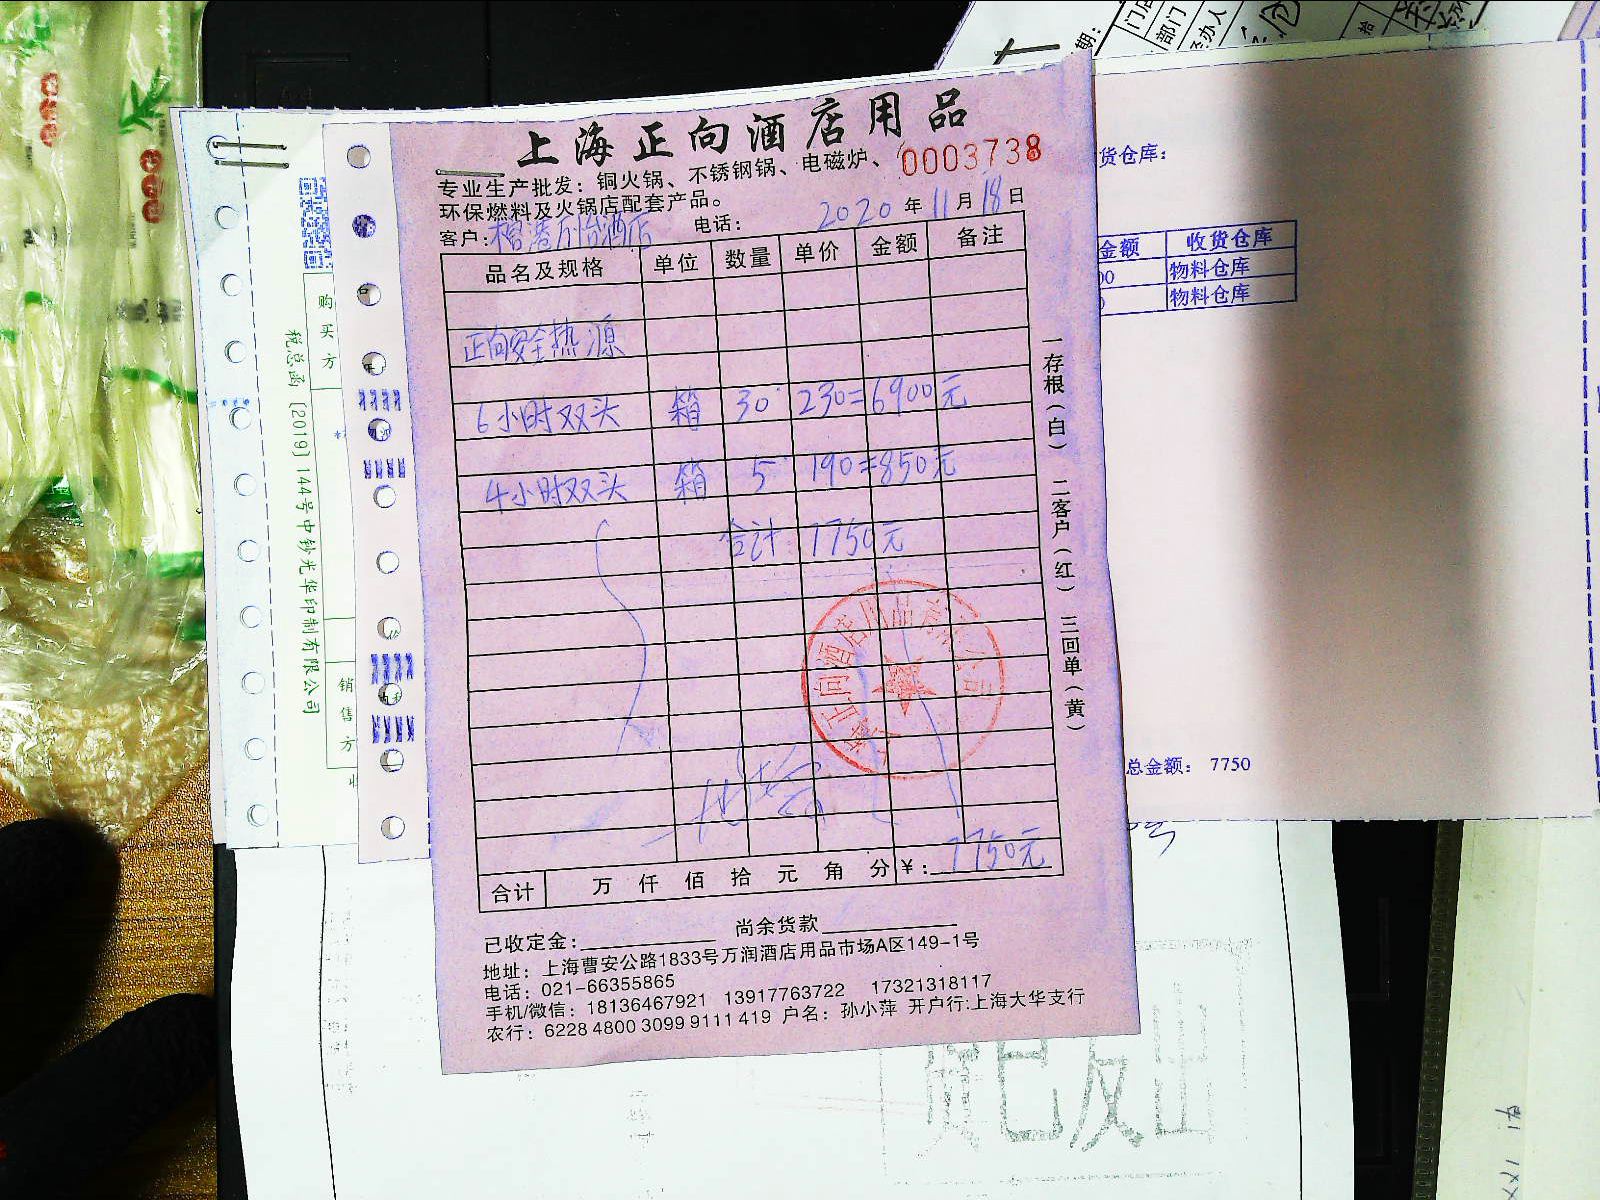 上海正向酒店用品
专业生产批发：铜火锅、不锈钢锅、电磁炉、
0003738
环保燃料及火锅店配套产品。
客户：
电话：
2020年11月18日
品名及规格 单位 数量 单价 金额 备注
正向安全热源
6小时双头 箱 30 230=6900元
4小时双头 箱 5 190=850元
合计：7750元
上海正向酒店用品有限公司
合计 万仟佰拾元角分 ¥：7750元
已收定金： 尚余货款
地址：上海曹安公路1833号万润酒店用品市场A区149-1号
电话：021-66355865
手机/微信：18136467921 13917763722 17321318117
农行：6228 4800 3099 9111 419 户名：孙小萍 开户行:上海大华支行
一存根（白） 二客户（红） 三回单（黄）
税总函［2019］144号中钞光华印制有限公司
购买方
销售方
货仓库：
金额 收货仓库
物料仓库
物料仓库
总金额： 7750
部门